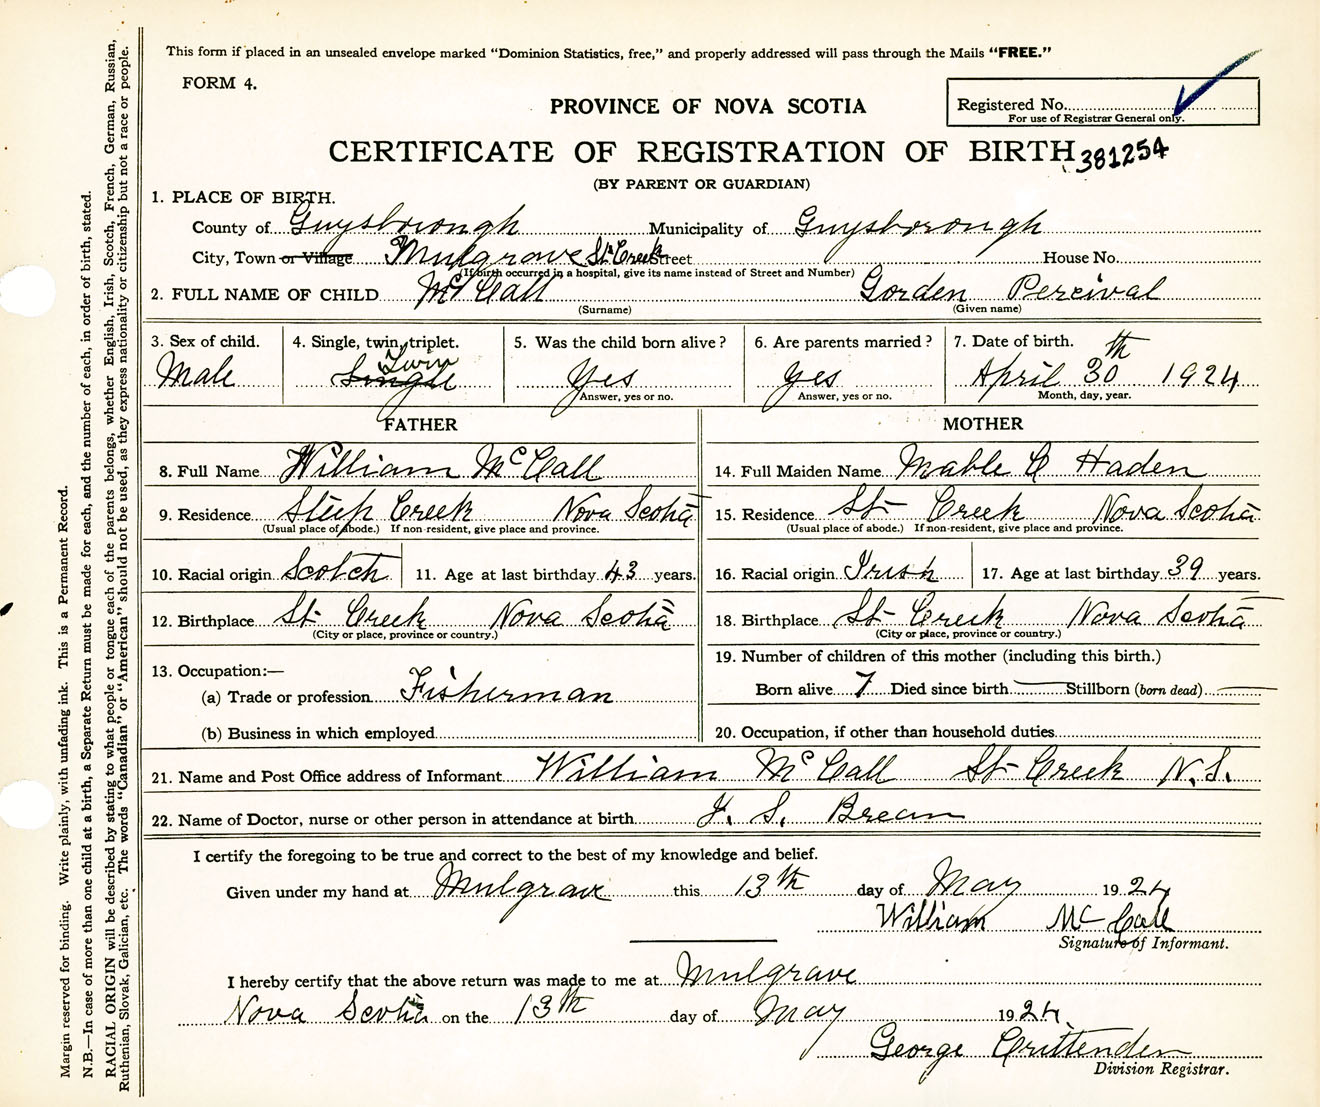 This form if placed in an unsealed envelope marked “Dominion Statistics, free,” and properly addressed will pass through the Mails “FREE.”
FORM 4.
PROVINCE OF NOVA SCOTIA
Registered No.
For use of Registrar General only.
CERTIFICATE OF REGISTRATION OF BIRTH
381254
(BY PARENT OR GUARDIAN)
1. PLACE OF BIRTH.
County of Guysborough Municipality of Guysborough
City, Town or Village Mulgrave St Creek Street House No.
(If birth occurred in a hospital, give its name instead of Street and Number)
2. FULL NAME OF CHILD McCall Gorden Percival
(Surname) (Given name)
3. Sex of child. 4. Single, twin, triplet. 5. Was the child born alive? 6. Are parents married? 7. Date of birth.
Male Single Twin Yes Yes April 30th 1924
Answer, yes or no. Answer, yes or no. Month, day, year.
FATHER MOTHER
8. Full Name William McCall 14. Full Maiden Name Mable C Haden
9. Residence Steep Creek Nova Scotia 15. Residence St Creek Nova Scotia
(Usual place of abode.) If non-resident, give place and province. (Usual place of abode.) If non-resident, give place and province.
10. Racial origin Scotch 11. Age at last birthday 43 years. 16. Racial origin Irish 17. Age at last birthday 39 years.
12. Birthplace St Creek Nova Scotia 18. Birthplace St Creek Nova Scotia
(City or place, province or country.) (City or place, province or country.)
13. Occupation:— 19. Number of children of this mother (including this birth.)
(a) Trade or profession Fisherman Born alive 7 Died since birth — Stillborn (born dead) —
(b) Business in which employed 20. Occupation, if other than household duties
21. Name and Post Office address of Informant William McCall St Creek N.S.
22. Name of Doctor, nurse or other person in attendance at birth S. Brean
I certify the foregoing to be true and correct to the best of my knowledge and belief.
Given under my hand at Mulgrave this 13th day of May 1924
William McCall
Signature of Informant.
I hereby certify that the above return was made to me at Mulgrave
Nova Scotia on the 13th day of May 1924.
George Crittenden
Division Registrar.
Margin reserved for binding. Write plainly, with unfading ink. This is a Permanent Record.
N.B.—In case of more than one child at a birth, a Separate Return must be made for each, and the number of each, in order of birth, stated.
RACIAL ORIGIN will be described by stating to what people or tongue each of the parents belongs, whether English, Irish, Scotch, French, German, Russian,
Ruthenian, Slovak, Galician, etc. The words “Canadian” or “American” should not be used, as they express nationality or citizenship but not a race or people.